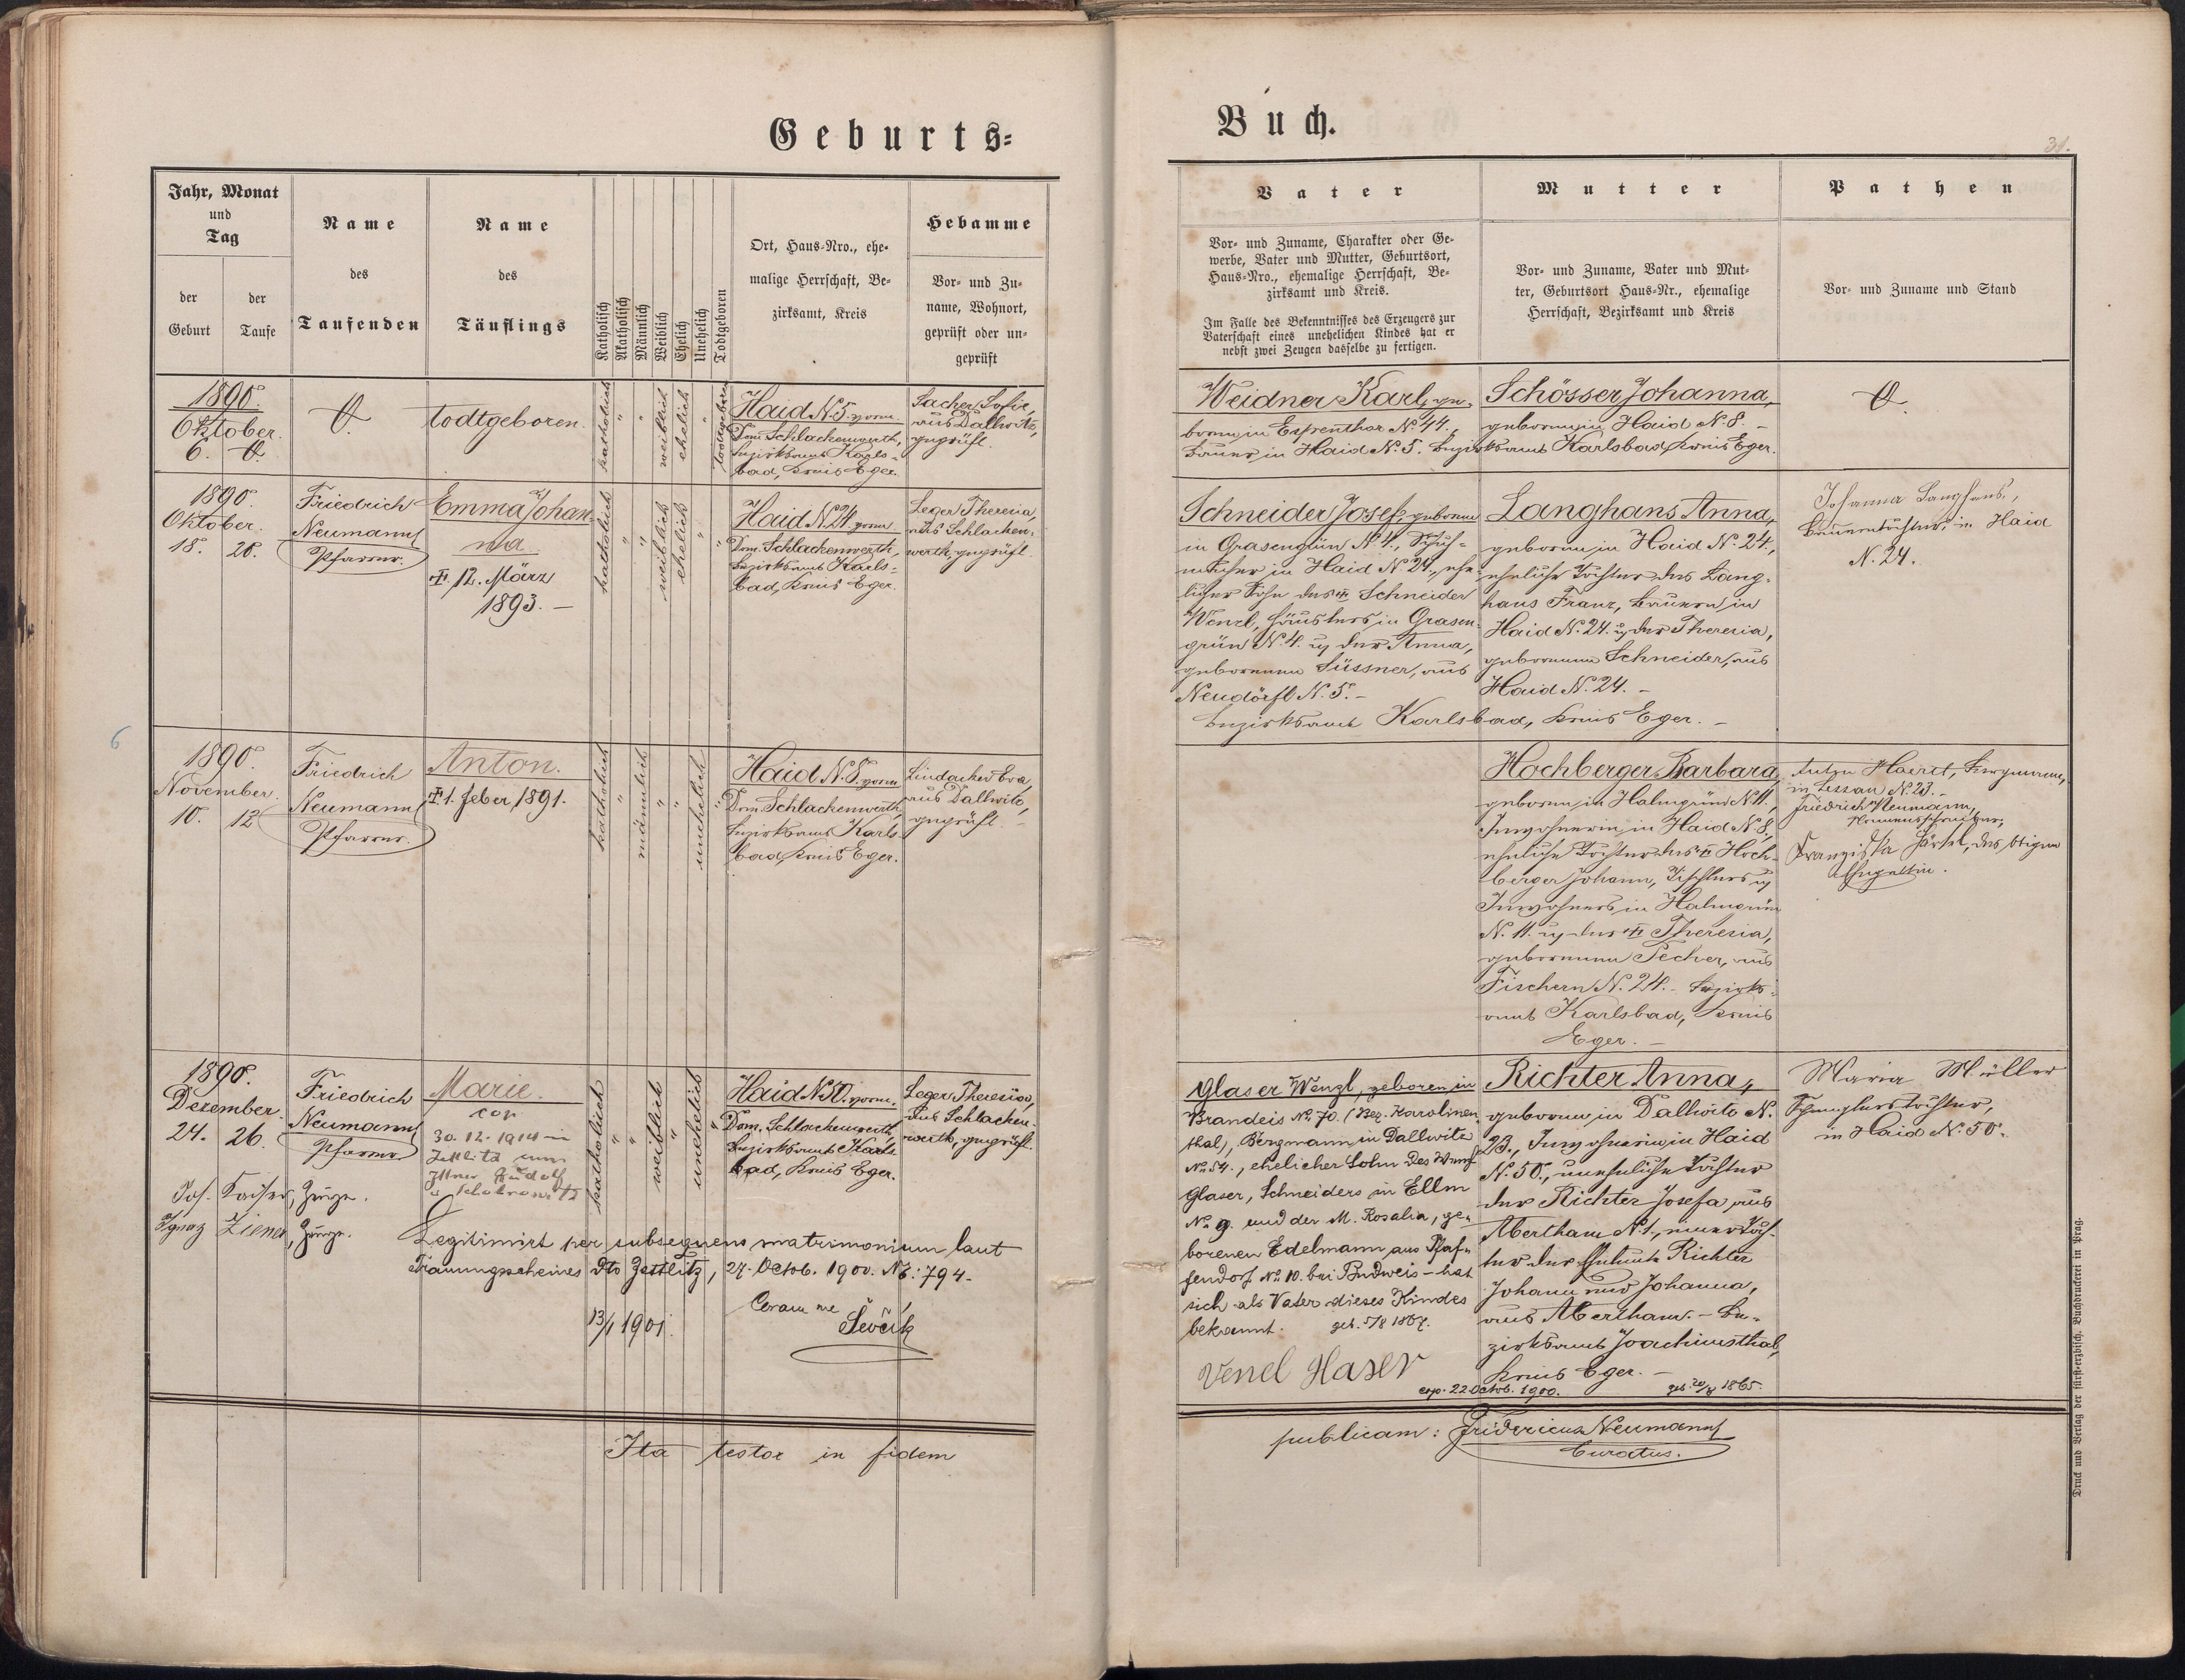 Geburts=
Buch.
31.
Jahr, Monat
und
Tag
der
Geburt
der
Taufe
Name
des
Taufenden
Name
des
Täuflings
Katholisch
Akatholisch
Männlich
Weiblich
Ehelich
Unehelich
Todtgeboren
Ort, Haus-Nro., ehe-
malige Herrschaft, Be-
zirksamt, Kreis
Hebamme
Vor- und Zu-
name, Wohnort,
geprüft oder un-
geprüft
Vater
Vor- und Zuname, Charakter oder Ge-
werbe, Vater und Mutter, Geburtsort,
Haus-Nro., ehemalige Herrschaft, Be-
zirksamt und Kreis.
Im Falle des Bekenntnisses des Erzeugers zur
Vaterschaft eines unehelichen Kindes hat er
nebst zwei Zeugen dasselbe zu fertigen.
Mutter
Vor- und Zuname, Vater und Mut-
ter, Geburtsort Haus-Nr., ehemalige
Herrschaft, Bezirksamt und Kreis
Pathen
Vor- und Zuname und Stand
1890.
Oktober.
6.
todtgeboren.
katholisch
"
"
weiblich
ehelich
"
todtgeboren
Haid N. 5. vorm.
Dom. Schlackenwerth,
Bezirksamt Karls-
bad, Kreis Eger.
Sacher Sofie,
aus Dallwitz,
geprüft.
Weidner Karl, ge-
boren in Espenthor N. 44.,
Bauer in Haid N. 5. Bezirksamt Karlsbad, Kreis Eger.
Schösser Johanna,
geboren in Haid N. 8. –
1890.
Oktober.
18. 20.
Friedrich
Neumann
Pfarrer.
Emma Johan-
na
† 12. März
1893. –
katholisch
"
"
weiblich
ehelich
"
"
Haid N. 24. vorm.
Dom. Schlackenwerth,
Bezirksamt Karls-
bad, Kreis Eger.
Leger Theresia,
aus Schlacken-
werth, geprüft.
Schneider Josef, geboren
in Grasengrün N. 4., Schuh-
macher in Haid N. 24., ehe-
licher Sohn des † Schneider
Wenzl, Häuslers in Grasen-
grün N. 4. u. der Anna,
geborenen Süssner, aus
Neudörfl N. 5. –
Bezirksamt Karlsbad, Kreis Eger. –
Langhans Anna,
geboren in Haid N. 24.,
eheliche Tochter des Lang-
hans Franz, Bauers in
Haid N. 24. u. der Theresia,
geborenen Schneider, aus
Haid N. 24. –
Johanna Langhans,
Bauerntochter, in Haid
N. 24.
6
1890.
November.
10. 12
Friedrich
Neumann
Pfarrer.
Anton.
† 1. Feber 1891.
katholisch
"
männlich
"
"
unehelich
"
Haid N. 8. vorm.
Dom. Schlackenwerth,
Bezirksamt Karls-
bad, Kreis Eger.
Lindacker Eva,
aus Dallwitz,
geprüft.
Hochberger Barbara,
geboren in Halmgrün N. 11.,
Inwohnerin in Haid N. 8.,
eheliche Tochter des † Hoch-
berger Johann, Tischlers u.
Inwohners in Halmgrün
N. 11. u. der † Theresia,
geborenen Pecher, aus
Fischern N. 24. – Bezirks-
amt Karlsbad, Kreis
Eger. –
Anton Haertl, Bergmann,
in Lessau N. 23. –
Friedrich Neumann,
Namensschreiber;
Franziska Härtel, des obigen
Ehegattin.
1890.
Dezember.
24. 26.
Friedrich
Neumann
Pfarrer.
Marie.
cop.
30. 12. 1914 in
Zettlitz mit
Rudolf
katholisch
"
"
weiblich
"
unehelich
"
Haid N. 50. vorm.
Dom. Schlackenwerth,
Bezirksamt Karls-
bad, Kreis Eger.
Leger Theresia,
aus Schlacken-
werth, geprüft.
Jos. Kaiser, Zeuge.
Ignaz Ziener, Zeuge.
Legitimirt per subsequens matrimonium laut
Trauungsscheines dto Zettlitz, 27. Octob. 1900. N: 794.
13/1 1901.
Coram me
Ševčik
Glaser Wenzl, geboren in
Brandeis No. 70. (Bez. Karolinen-
thal), Bergmann in Dallwitz
No. 54., ehelicher Sohn des Wenzl
Glaser, Schneiders in Elln
No. 9. und der M. Rosalia, ge-
borenen Edelmann aus Pfaf-
fendorf No. 10. bei Budweis – hat
sich als Vater dieses Kindes
bekannt. geb. 5/8 1867.
Venel Glaser
cop. 22. Octob. 1900.
Richter Anna,
geboren in Dallwitz N.
23., Inwohnerin in Haid
N. 50., uneheliche Tochter
der Richter Josefa aus
Abertham N. 1., einer Toch-
ter der Eheleute Richter
Johann und Johanna,
aus Abertham. – Be-
zirksamt Joachimsthal,
Kreis Eger. –
geb. 20/8 1865.
Maria Müller
Spenglerstochter,
in Haid N. 50.
Ita testor in fidem
publicam: Fridericus Neumann
Curatus.
Druck und Verlag der fürst-erzbisch. Buchdruckerei in Prag.